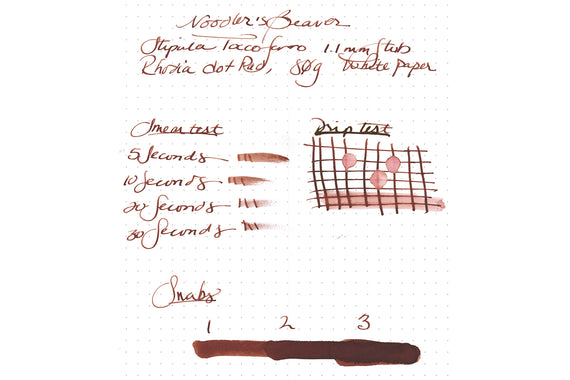 Noodler's Beaver
Stipula Tacoferro 1.1mm Stub
Rhodia dot Pad, 80g White paper
Smear test
5 Seconds
10 Seconds
20 Seconds
30 Seconds
Drip test
Swabs
1 2 3